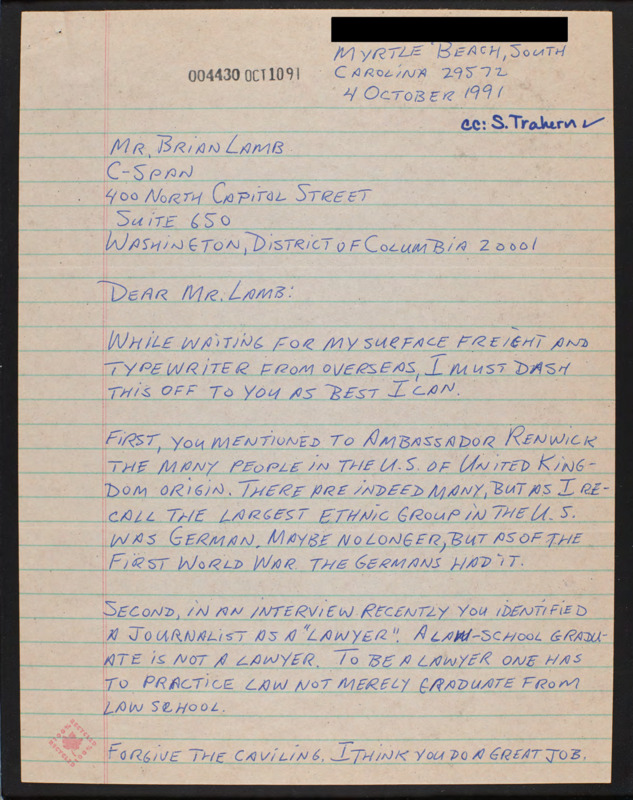 MYRTLE BEACH, SOUTH
CAROLINA 29572
004430 OCT1091
4 OCTOBER 1991
cc: S. Trahern ✓
MR. BRIAN LAMB
C-SPAN
400 NORTH CAPITOL STREET
SUITE 650
WASHINGTON, DISTRICT OF COLUMBIA 20001
DEAR MR. LAMB:
WHILE WAITING FOR MY SURFACE FREIGHT AND
TYPEWRITER FROM OVERSEAS, I MUST DASH
THIS OFF TO YOU AS BEST I CAN.
FIRST, YOU MENTIONED TO AMBASSADOR RENWICK
THE MANY PEOPLE IN THE U.S. OF UNITED KING-
DOM ORIGIN. THERE ARE INDEED MANY, BUT AS I RE-
CALL THE LARGEST ETHNIC GROUP IN THE U.S.
WAS GERMAN. MAYBE NO LONGER, BUT AS OF THE
FIRST WORLD WAR THE GERMANS HAD IT.
SECOND, IN AN INTERVIEW RECENTLY YOU IDENTIFIED
A JOURNALIST AS A "LAWYER". A LAW-SCHOOL GRADU-
ATE IS NOT A LAWYER. TO BE A LAWYER ONE HAS
TO PRACTICE LAW NOT MERELY GRADUATE FROM
LAW SCHOOL.
FORGIVE THE CAVILING. I THINK YOU DO A GREAT JOB.